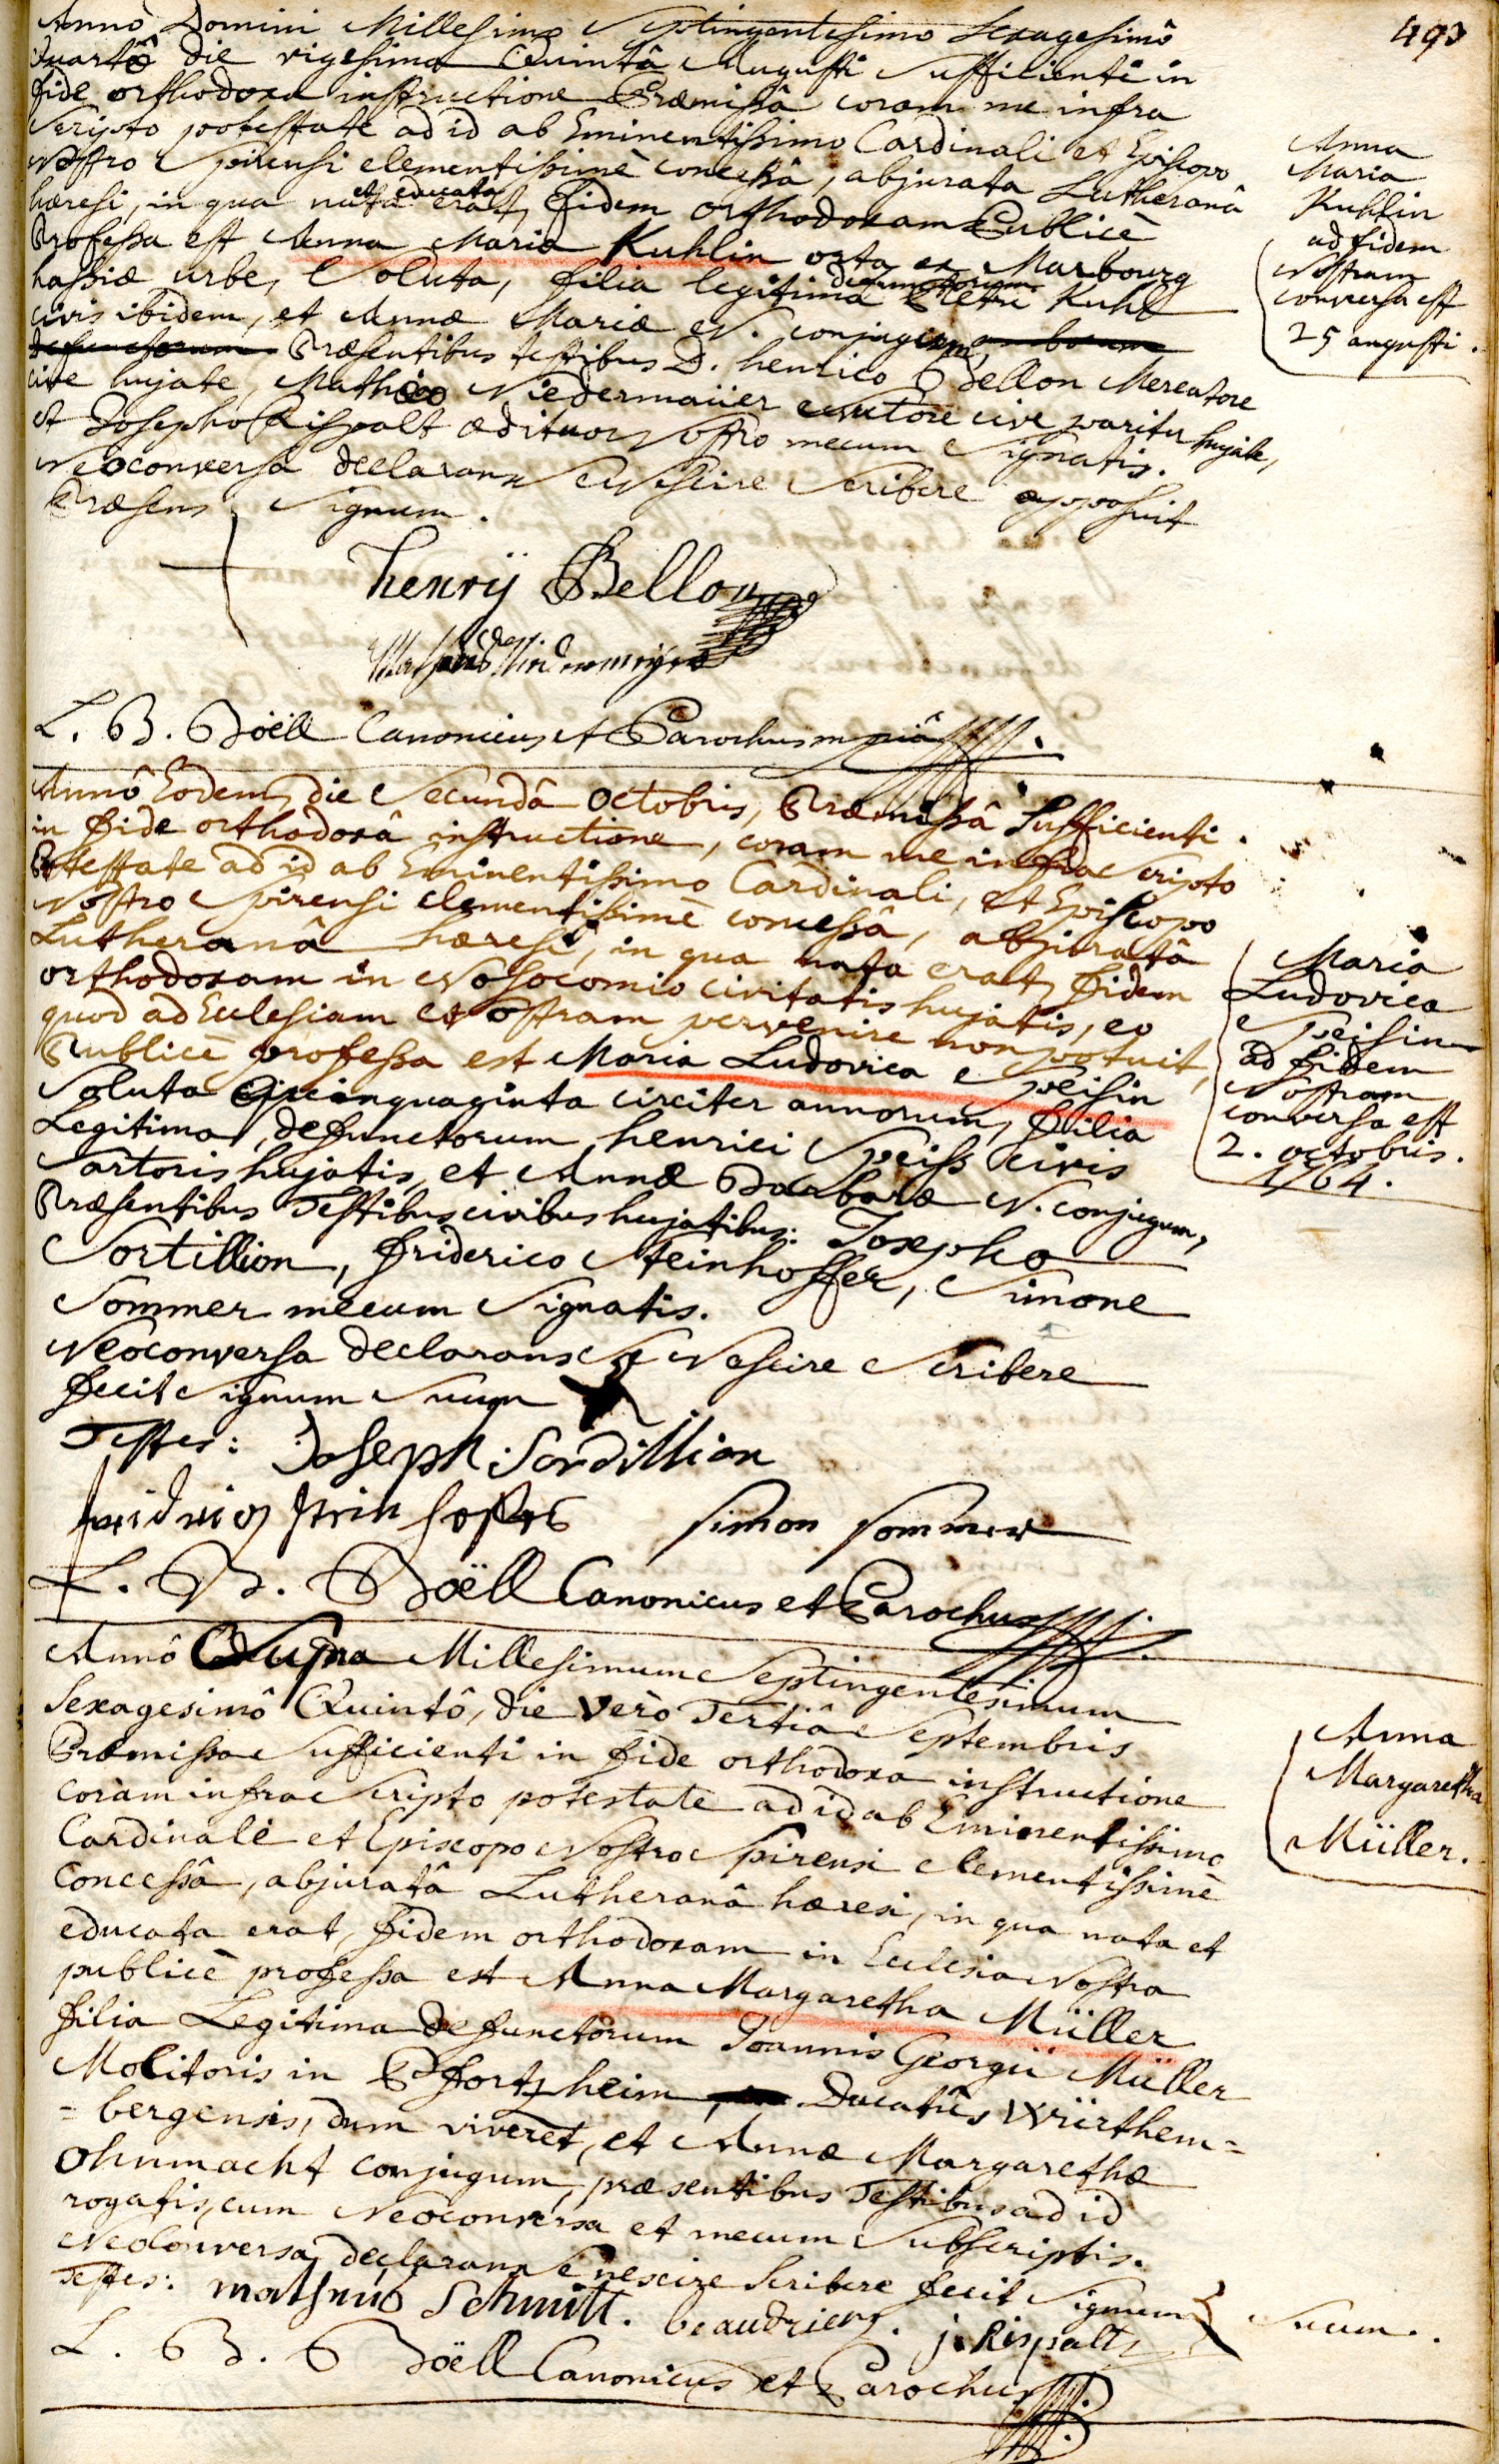 493
Anno Domini Millesimo Septingentesimo Sexagesimô
quartô die vigesima Quintâ Augusti Sufficienti in
fide orthodoxa instructione Præmissâ coram me infra
Scripto potestate ad id ab Eminentissimo Cardinali et Episcopo
Nostro Spirensi clementissimè concessâ, abjurata Lutheranâ
hæresi, in qua nata et educata erat, fidem orthodoxam Publicè
Professa est Anna Maria Kuhlin orta ex Marbourg
hassiæ urbe, Soluta, filia legitima defunctorum Petri Kuhl
civis ibidem, et Annæ Mariæ N. conjugum, amborum
defunctorum Præsentibus testibus D. henrico Bellon Mercatore
cive hujate, Mathæo Niedermaijer cive pariter hujate,
et Josepho Rispalt ædituo Nostro mecum Signatis.
Neoconversa declarans Se Nescire Scribere apposuit
Præsens Signum.
Anna
Maria
Kuhlin
ad fidem
Nostram
conversa est
25 augusti.
henrij Bellon
L. B. Böell Canonicus et Parochus mpiâ
Annô Eodem, die Secundâ Octobris, Præmissâ Sufficienti
in fide orthodoxâ instructione, coram me infra Scripto
Potestate ad id ab Eminentissimo Cardinali, et Episcopo
Nostro Spirensi clementissimè concessâ, abjuratâ
Lutheranâ hæresi, in qua nata erat, fidem
orthodoxam in Nosocomio civitatis hujatis, eo
quod ad Ecclesiam Nostram pervenire non potuit,
Publicè professa est Maria Ludovica Speisin
Soluta Quinquaginta circiter annorum, filia
Legitima, defunctorum henrici Speiss civis
Sartoris hujatis, et Annæ Barbaræ N. conjugum,
Præsentibus Testibus civibus hujatibus: Josepho
Sortillion, friderico Steinhoffer, Simone
Sommer mecum Signatis.
Neoconversa declarans Se Nescire Scribere
fecit Signum Suum
Maria
Ludovica
Speisin
ad fidem
Nostram
conversa est
2. octobris.
1764.
Testes: Joseph Sordillion
fridrich Steinhoffer simon sommer
L. B. Böell Canonicus et Parochus
Annô Supra Millesimum Septingentesimum
Sexagesimô Quintô, die verò Tertiâ Septembris
Præmissa Sufficienti in fide orthodoxa instructione
coram infra Scripto potestate ad id ab Eminentissimo
Cardinale et Episcopo Nostro Spirensi clementissimè
Concessâ, abjuratâ Lutheranâ hæresi, in qua nata et
educata erat, fidem orthodoxam in Ecclesia Nostra
publicè professa est Anna Margaretha Müller
filia Legitima defunctorum Joannis Georgii Müller
Molitoris in Pfortzheim Ducatûs Würthem=
=bergensis, dum viveret, et Annæ Margarethæ
Ohnmacht conjugum, præsentibus Testibus ad id
rogatis, cum Neoconversa et mecum Subscriptis.
Neoconversa declarans Se nescire Scribere fecit Signum Suum.
Anna
Margaretha
Müller.
Testes: mathuis Schmitt. beaudrier. j. Rispalt
L. B. Böell Canonicus et Parochus